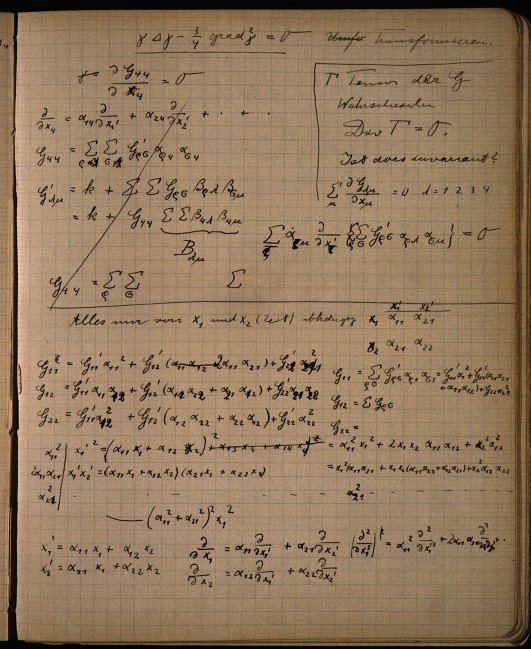 γ Δγ − 3/4 grad²γ = 0 transformieren.
γ = ∂G44/∂x4 = 0
∂/∂x4 = α14 ∂/∂x1' + α24 ∂/∂x2' + · · ·
G44 = Σ Σ G'ρσ αρ4 ασ4
G'λμ = k + Σ Σ Gρσ βρλ βσμ
= k + G44 Σ Σ β4λ β4μ
Bλμ
G44 = Σρ Σσ Σ
Γ Tensor der G
Wahrscheinlich
Div Γ = 0.
Ist dies invariant?
Σμ ∂Gλμ/∂xμ = 0 λ = 1 2 3 4
Σ αρμ ∂/∂x' {ΣΣ G'ρσ αρλ ασμ} = 0
Alles nur von x1 und x2 (Zeit) abhängig
x1' x2'
x1 α11 α21
x2 α21 α22
G11 = G'11 α11² + G'12 (α11 2α11 α21) + G'22 α21²
G12 = G'11 α11 α12 + G'12 (α12 α22 + α21 α12) + G'22 α21 α22
G22 = G'11 α12² + G'12 (α12 α22 + α22 α12) + G'22 α22²
G11 = Σρσ G'ρσ αρ1 ασ1 = G'11 α11² + G'12 (α11 α21
+ α21 α12) + G22 α21²
G12 = Σ Gρσ
G22 =
α11² x1'² = (α11 x1 + α12 x2)² + α13 x3 + α14 x4)² = α11² x1² + 2 x1 x2 α11 α12 + x2² α12²
2α11 α21 x1'x2' = (α11 x1 + α12 x2)(α21 x1 + α22 x2) = x1² α11 α21 + x1 x2 (α11 α22 + α12 α21) + x2² α12 α22
α21² α21²
(α11² + α21²)² x1²
x1' = α11 x1 + α12 x2 ∂/∂x1 = α11 ∂/∂x1' + α21 ∂/∂x2' ∂²/∂x1² = α11² ∂²/∂x1'² + 2α11 α21 ∂²
x2' = α21 x1 + α22 x2 ∂/∂x2 = α12 ∂/∂x1' + α22 ∂/∂x2'